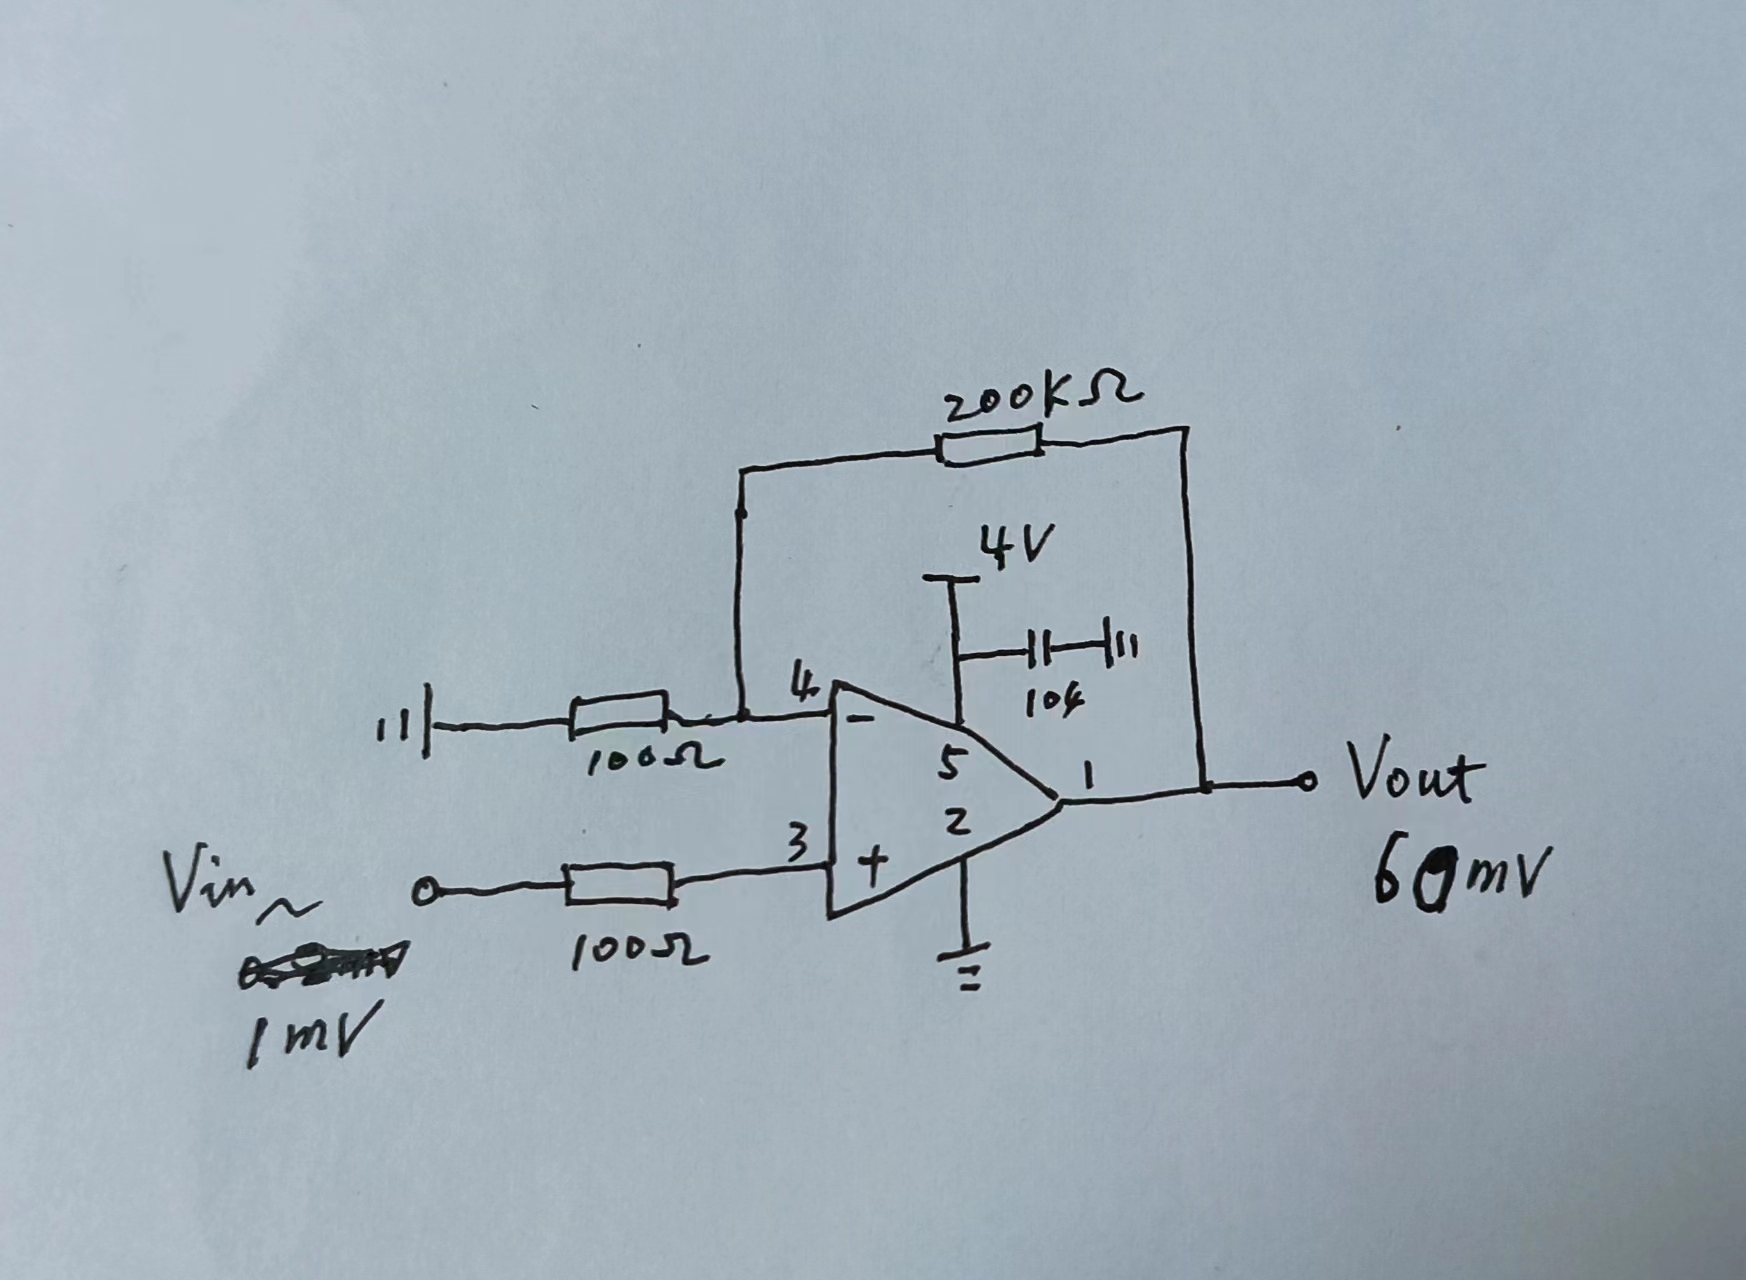 200KΩ
4V
104
4
-
100Ω
5
1
Vout
2
60mV
3
+
Vin~
100Ω
1mV